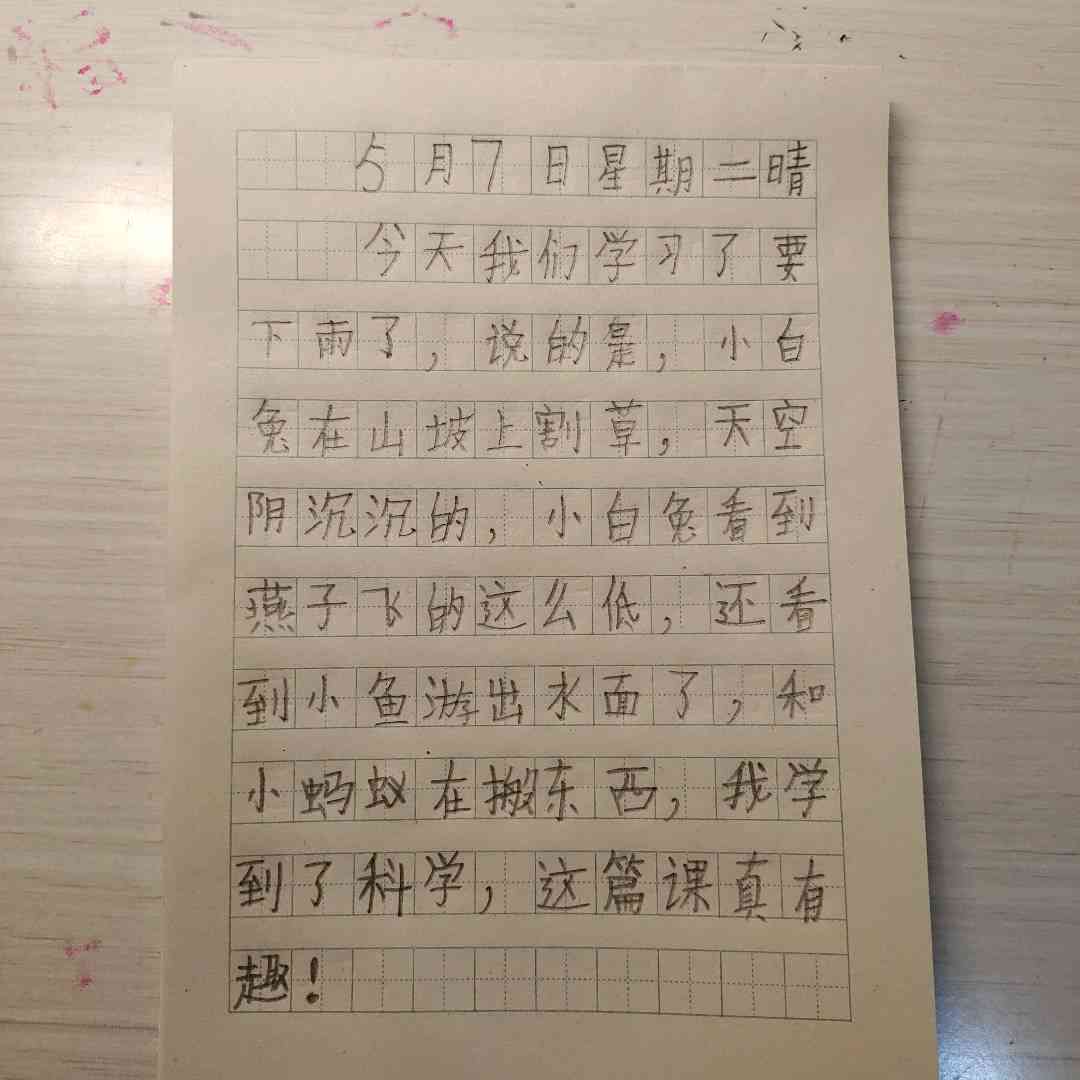 5月7日星期二晴
今天我们学习了要
下雨了，说的是，小白
兔在山坡上割草，天空
阴沉沉的，小白兔看到
燕子飞的这么低，还看
到小鱼游出水面了，和
小蚂蚁在搬东西，我学
到了科学，这篇课真有
趣！